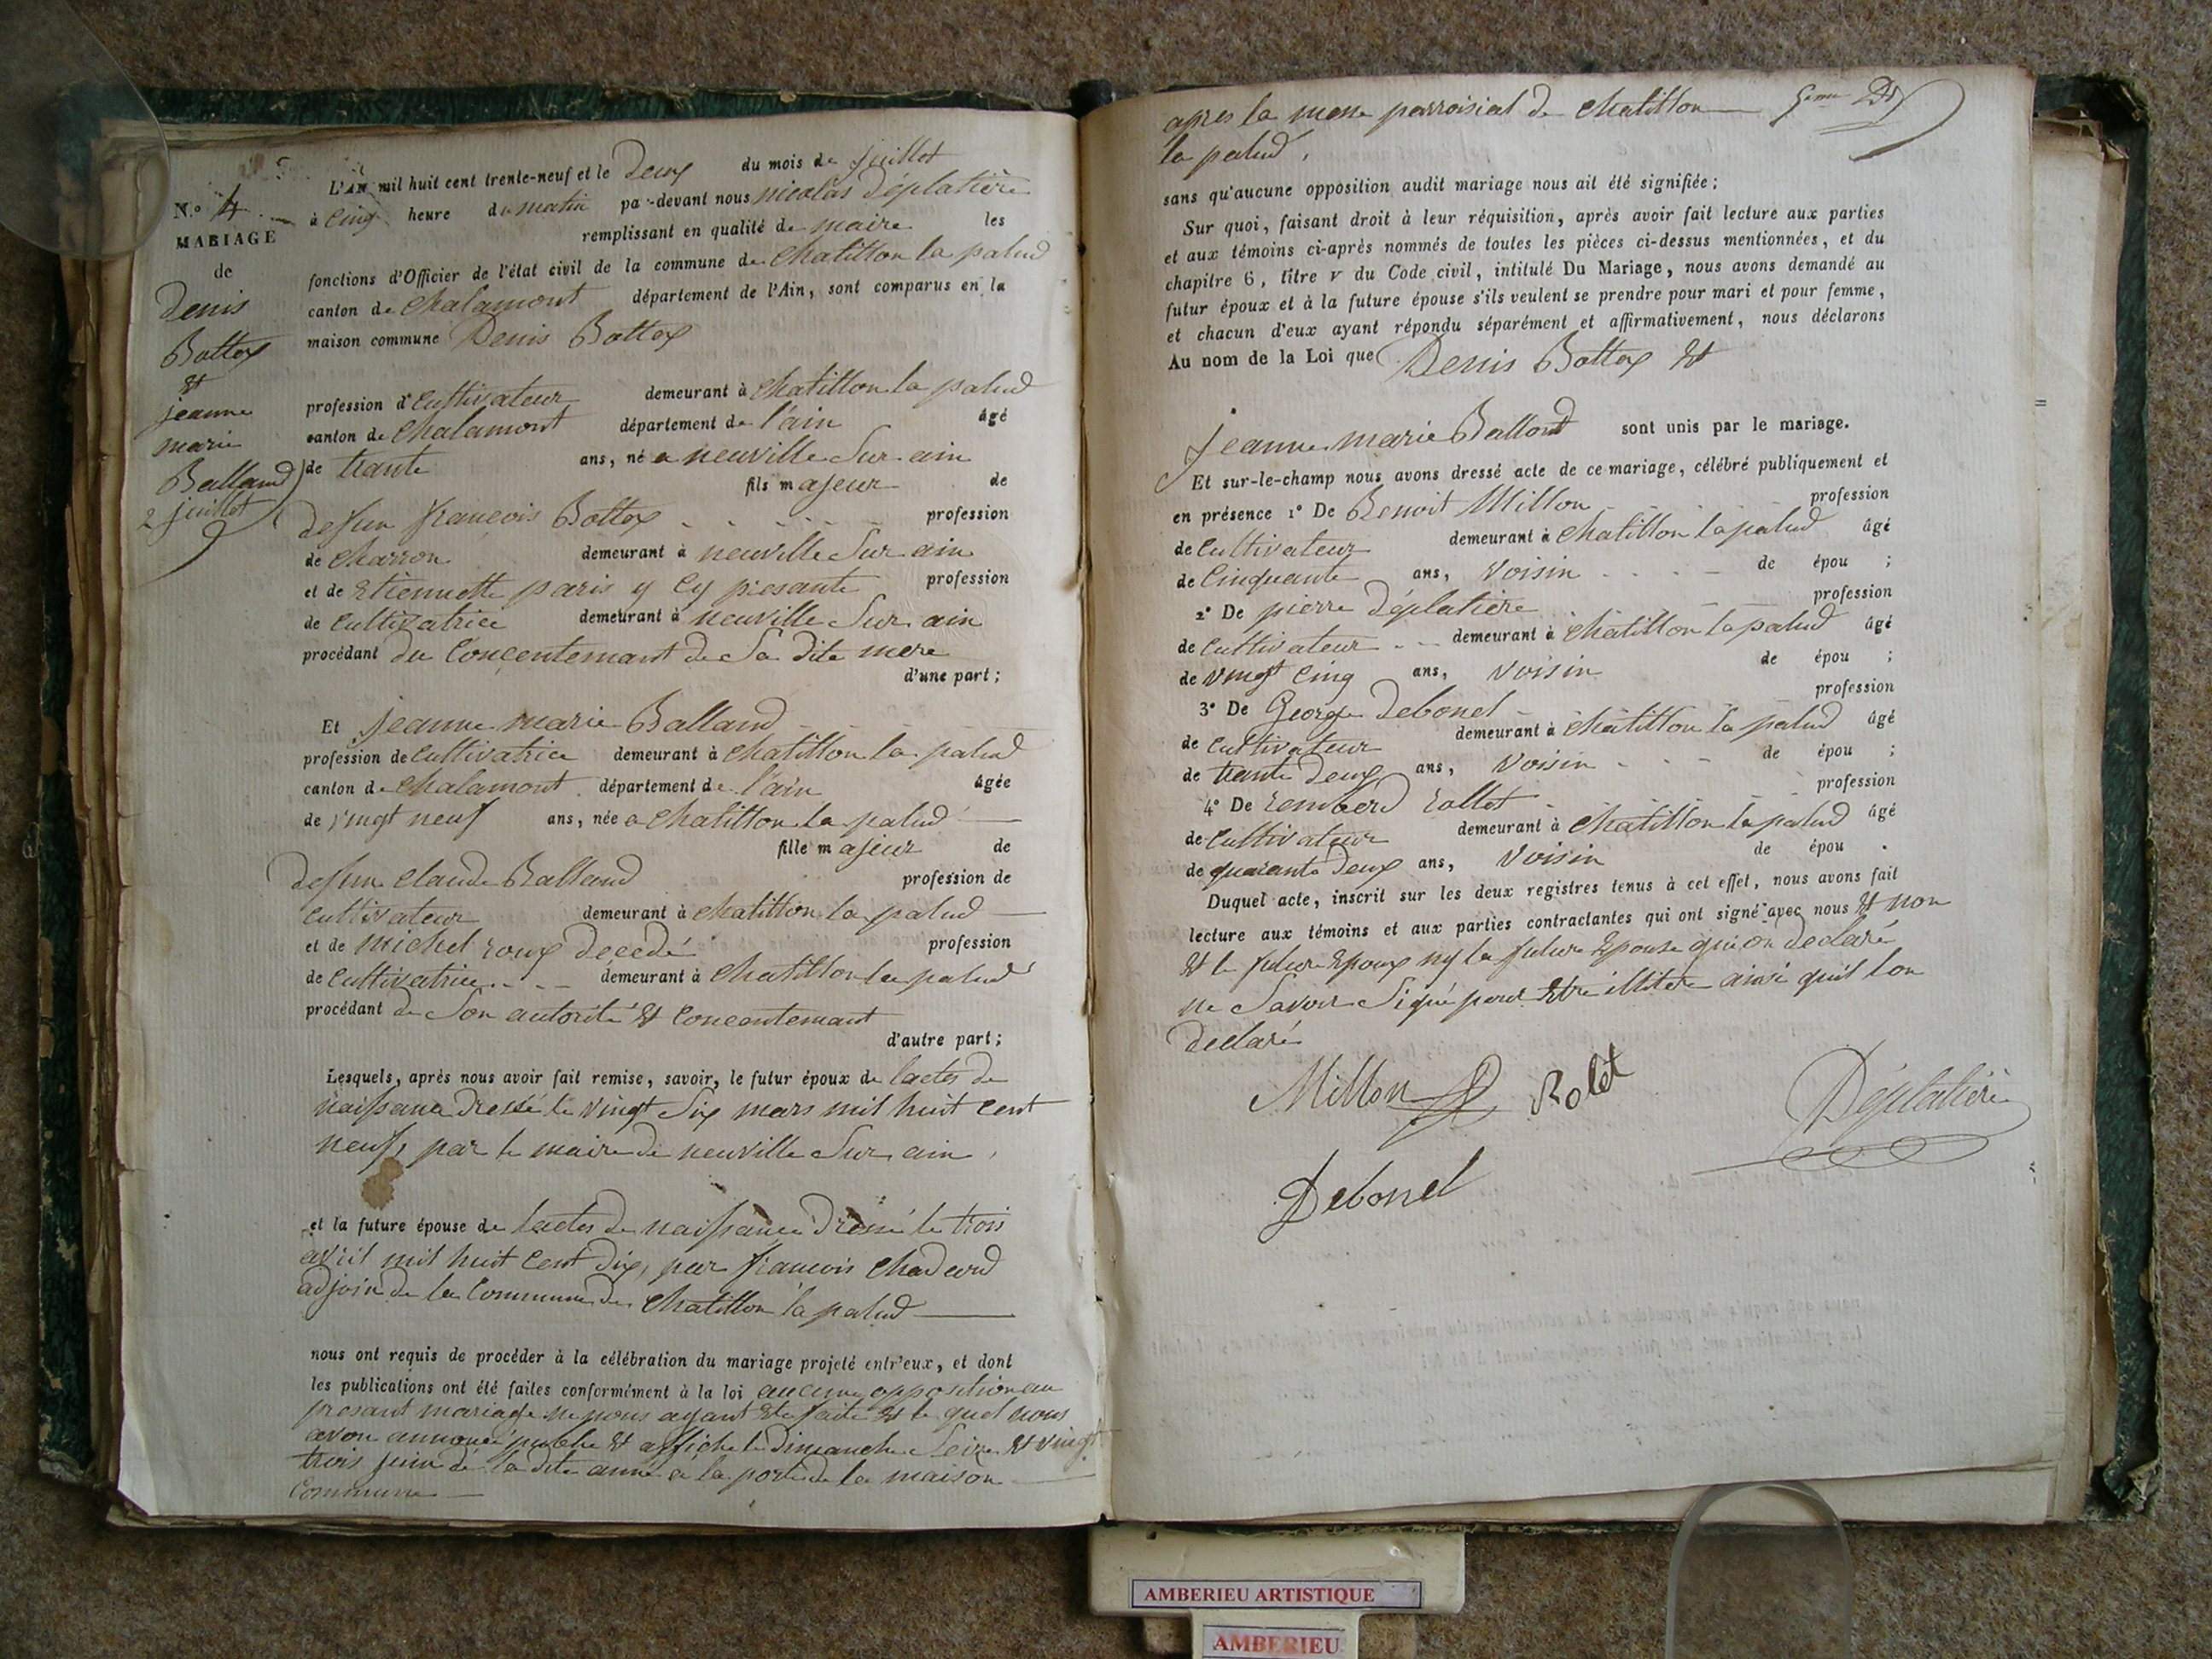 N.º 4
MARIAGE
de
Denis
Bottex
et
jeanne
marie
Balland
2 juillet
L'AN mil huit cent trente-neuf et le Deux du mois de juillet
à Cinq heure du matin par-devant nous nicolas Déplatière
remplissant en qualité de maire les
fonctions d'Officier de l'état civil de la commune de Chatillon la palud
canton de Chalamont département de l'Ain, sont comparus en la
maison commune Denis Bottex
profession d Cultivateur demeurant à Chatillon la palud
canton de Chalamont département de l'ain âgé
de trante ans, né a neuville Sur ain
fils majeur de
defun francois Bottex profession
de Charron demeurant à neuville Sur ain
et de Etiennette paris y Cy presante profession
de Cultivatrice demeurant à neuville Sur ain
procédant du Concentemant de Sa dite mere
d'une part;
Et jeanne marie Balland
profession de Cultivatrice demeurant à Chatillon la palud
canton de Chalamont département de l'ain âgée
de vingt neuf ans, née a Chatillon la palud
fille majeur de
defun Claude Balland profession de
Cultivateur demeurant à Chatillon la palud
et de michel roux decedé profession
de Cultivatrice demeurant à Chatillon la palud
procédant de Son autorité et Concentemant
d'autre part;
Lesquels, après nous avoir fait remise, savoir, le futur époux de lactes de
naissance dressé le vingt Six mars mil huit Cent
neuf, par le maire de neuville Sur ain,
et la future épouse de lactes de naissance dressé le trois
avril mil huit Cent dix, par francois Chadard
adjoin de la Commune de Chatillon la palud
nous ont requis de procéder à la célébration du mariage projeté entr'eux, et dont
les publications ont été faites conformément à la loi aucune opposition au
presant mariage ne nous ayant ete faite et le quel nous
avon annoncé publie et affiche le Dimanche Seize et vingt
trois juin de la dite anné a la porte de la maison
Commune
apres la messe parroisial de Chatillon
la palud,
sans qu'aucune opposition audit mariage nous ait été signifiée;
Sur quoi, faisant droit à leur réquisition, après avoir fait lecture aux parties
et aux témoins ci-après nommés de toutes les pièces ci-dessus mentionnées, et du
chapitre 6, titre v du Code civil, intitulé Du Mariage, nous avons demandé au
futur époux et à la future épouse s'ils veulent se prendre pour mari et pour femme,
et chacun d'eux ayant répondu séparément et affirmativement, nous déclarons
Au nom de la Loi que Denis Bottex et
jeanne marie Balland sont unis par le mariage.
Et sur-le-champ nous avons dressé acte de ce mariage, célébré publiquement et
en présence 1º De Benoit Millon profession
de Cultivateur demeurant à Chatillon la palud âgé
de Cinquante ans, Voisin de épou ;
2º De pierre Déplatière profession
de Cultivateur demeurant à Chatillon la palud âgé
de vingt Cinq ans, Voisin de épou ;
3º De George Debonel profession
de Cultivateur demeurant à Chatillon la palud âgé
de trante Deux ans, Voisin de épou ;
4º De rember rollet profession
de Cultivateur demeurant à Chatillon la palud âgé
de quarante Deux ans, Voisin de épou .
Duquel acte, inscrit sur les deux registres tenus à cet effet, nous avons fait
lecture aux témoins et aux parties contractantes qui ont signé avec nous et non
et le futur Epoux ny la future Epouse qui on declaré
ne Savoir Signé pour Etre illitere ainsi quil lon
declaré
Millon Rolet Déplatière
Debonel
AMBERIEU ARTISTIQUE
AMBERIEU